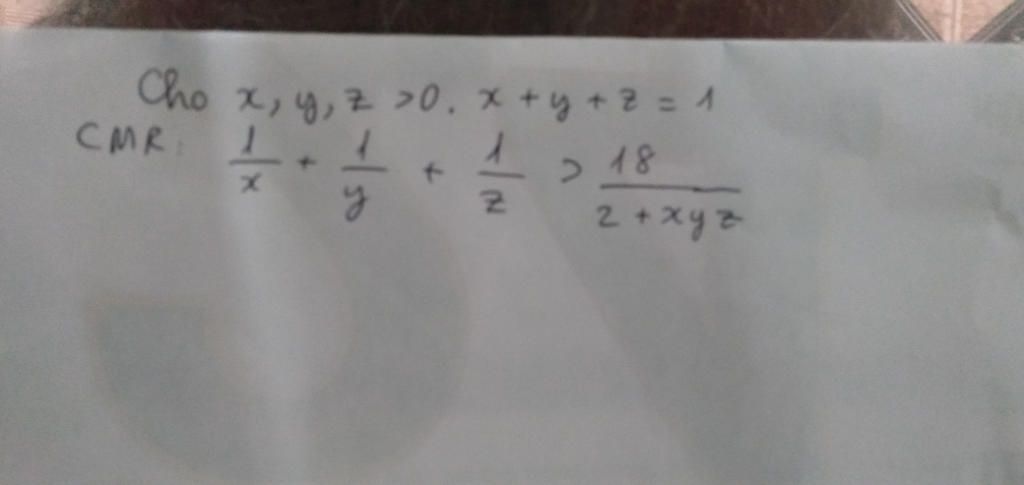 Cho x, y, z >0. x + y + z = 1
CMR: 1/x + 1/y + 1/z > 18/(2 + xyz)